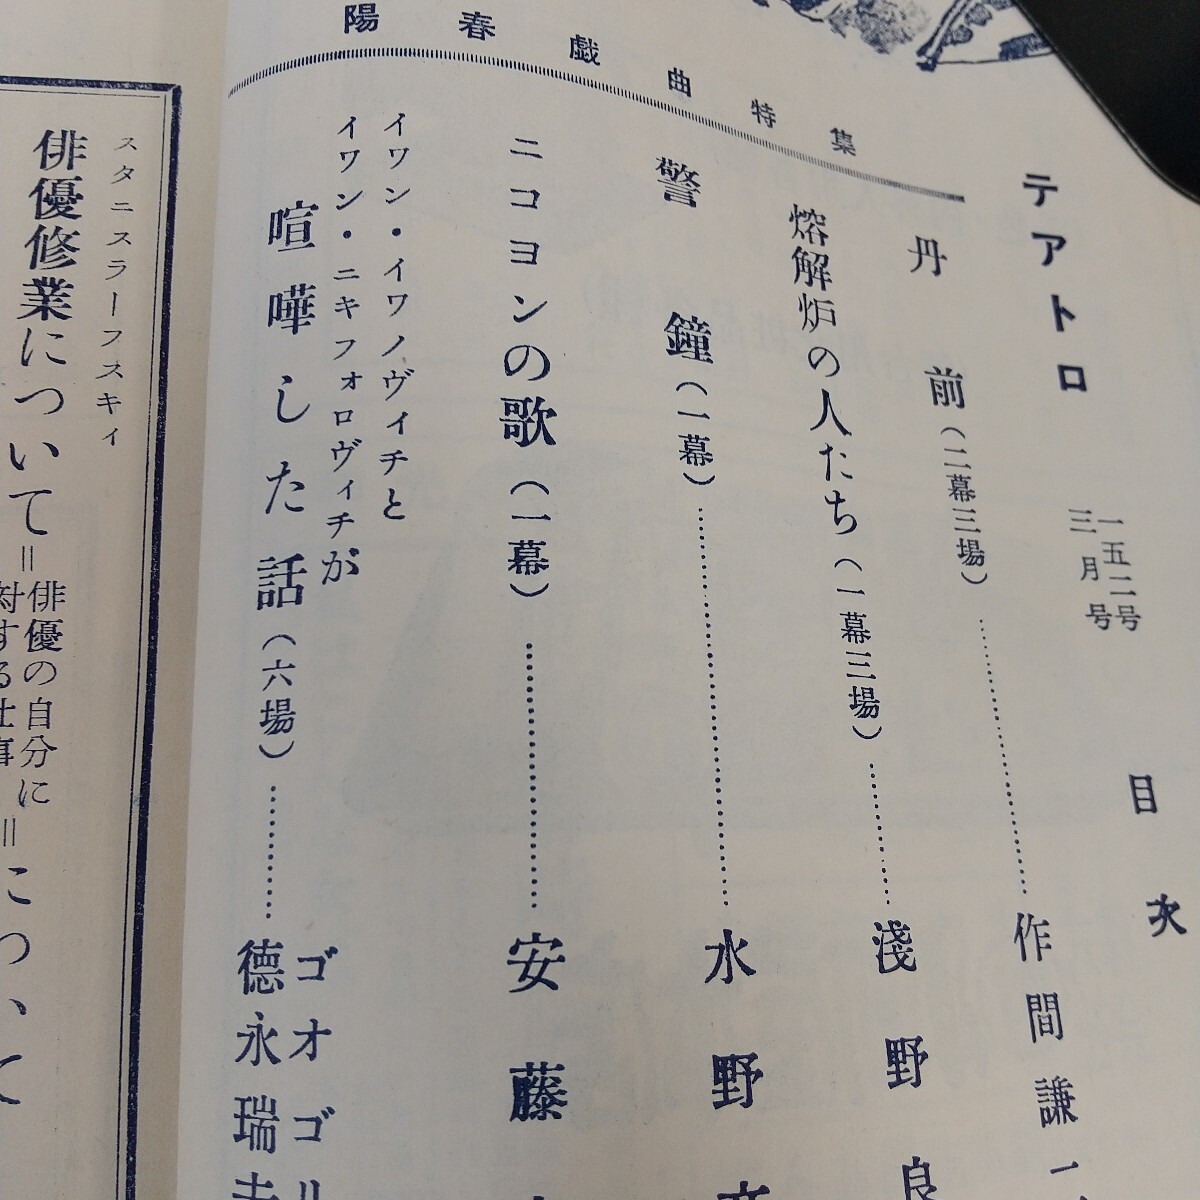 テアトロ
一五二号
三月号
目次
陽春戯曲特集
丹前(二幕三場)………作間謙一
熔解炉の人たち(一幕三場)………淺野良
警鐘(一幕)………水野
ニコヨンの歌(一幕)………安藤
イワン・イワノヴイチと
イワン・ニキフォロヴィチが
喧嘩した話(六場)………
ゴオゴリ
德永瑞夫
スタニスラーフスキイ
俳優修業について
=俳優の自分に
対する仕事=
について